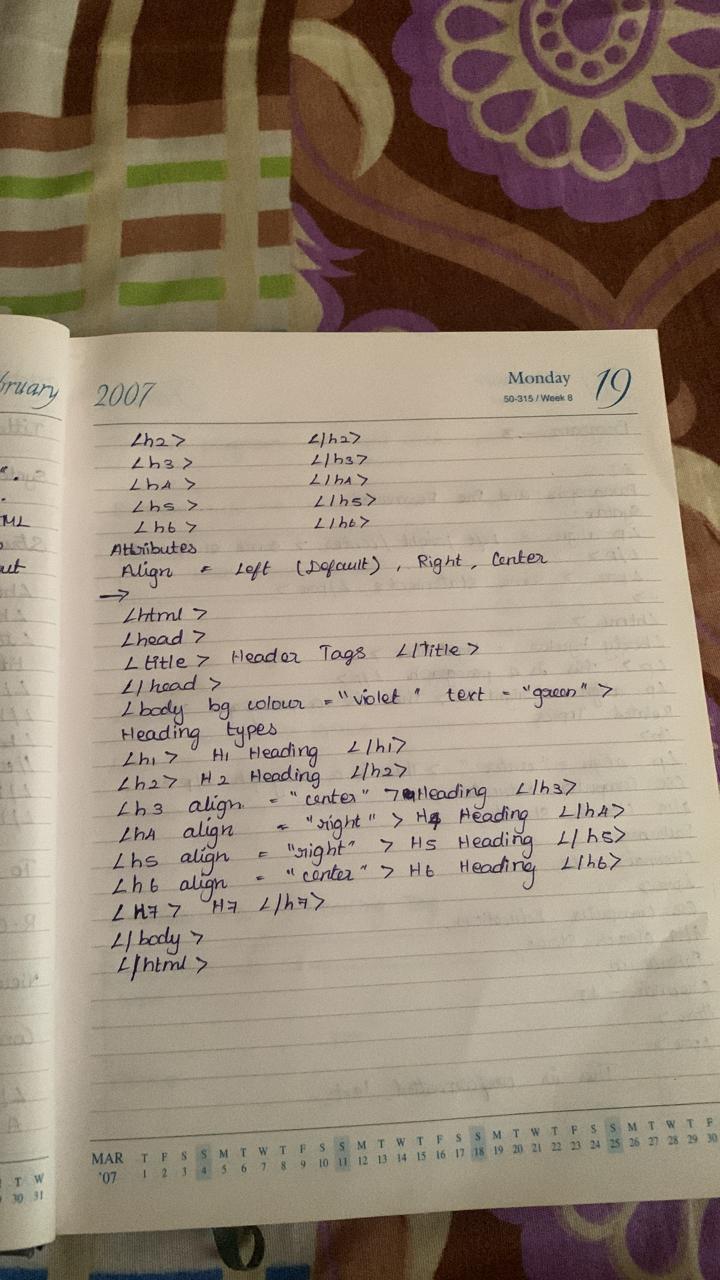 bruary
2007
Monday 19
50-315 / Week 8
<h2> </h2>
<h3> </h3>
<h4> </h4>
<h5> </h5>
<h6> </h6>
Attributes
Align = Left (Default) , Right , Center
→
<html>
<head>
<title> Header Tags </Title>
</head>
<body bg colour = "violet" text = "green" >
Heading types
<h1> H1 Heading </h1>
<h2> H2 Heading </h2>
<h3 align = "center" > Heading </h3>
<h4 align = "right" > H4 Heading </h4>
<h5 align = "right" > H5 Heading </h5>
<h6 align = "center" > H6 Heading </h6>
<H7> H7 </h7>
</body>
</html>
MAR T F S S M T W T F S S M T W T F S S M T W T F S S M T W T F
'07 1 2 3 4 5 6 7 8 9 10 11 12 13 14 15 16 17 18 19 20 21 22 23 24 25 26 27 28 29 30
T W
30 31